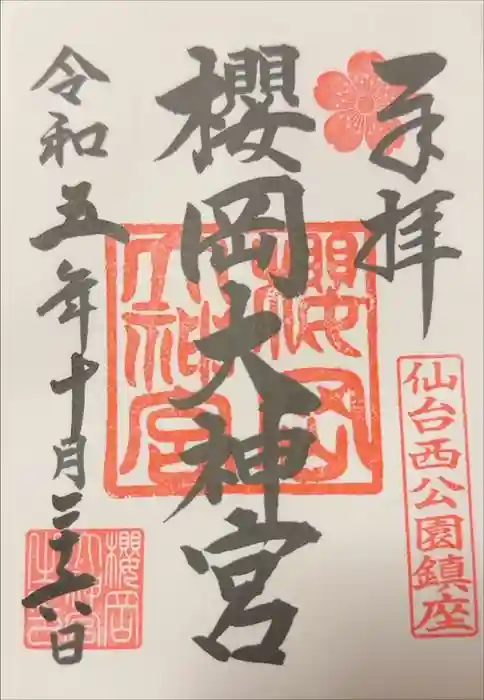 奉拝
仙台西公園鎮座
櫻岡大神宮
櫻岡
大神宮
令和五年十月二十六日